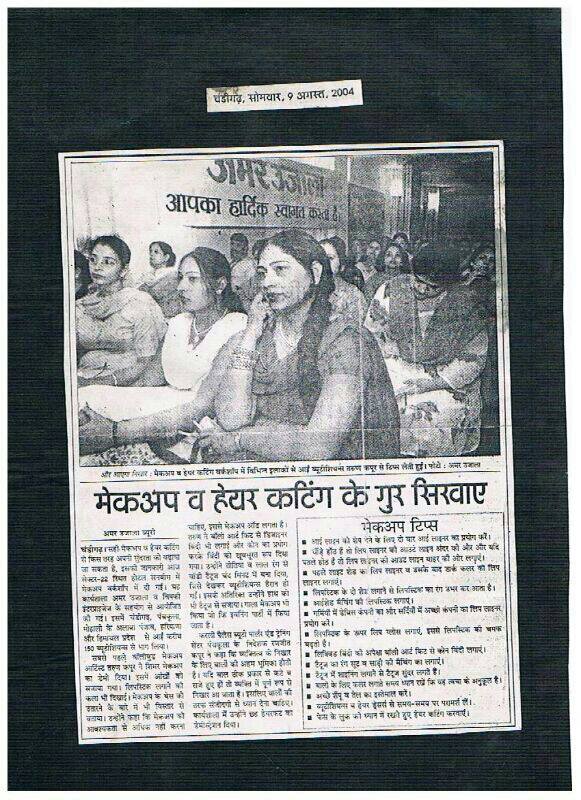 चंडीगढ़, सोमवार, 9 अगस्त, 2004
अमर उजाला
आपका हार्दिक स्वागत करता है
और आएगा निखार : मेकअप व हेयर कटिंग वर्कशॉप में विभिन्न इलाकों से आई ब्यूटीशियनस तरुण कपूर से टिप्स लेती हुईं। फोटो : अमर उजाला
मेकअप व हेयर कटिंग के गुर सिखाए
अमर उजाला ब्यूरो
चंडीगढ़। सही मेकअप व हेयर कटिंग
से किस तरह अपनी सुंदरता को बढ़ाया
जा सकता है, इसकी जानकारी आज
सेक्टर-22 स्थित होटल सनबीम में
मेकअप वर्कशॉप में दी गई। यह
कार्यशाला अमर उजाला व
इंटरप्राइजेज के सहयोग से आयोजित
की गई। इसमें चंडीगढ़, पंचकूला,
मोहाली के अलावा पंजाब, हरियाणा
और हिमाचल प्रदेश से आई करीब
150 ब्यूटीशियन ने भाग लिया।
सबसे पहले बॉलीवुड मेकअप
आर्टिस्ट तरुण कपूर ने शिमर मेकअप
का डेमो दिया। इसमें आंखों को
सजाया गया। लिपस्टिक लगाने की
कला भी दिखाई। मेकअप बेस को
उतारने के बारे में भी विस्तार से
बताया। उन्होंने कहा कि मेकअप को
आवश्यकता से अधिक नहीं करना
चाहिए, इससे मेकअप ऑड लगता है।
तरुण ने बॉली आर्ट किट से डिजाइनर
बिंदी भी लगाई और कोन का प्रयोग
करके बिंदी को खूबसूरत रूप दिया
गया। उन्होंने व लाल रंग से
चांदी टैटूज चंद मिनट में बना दिया,
जिसे देखकर ब्यूटीशियनस हैरान हो
गई। इसकी अतिरिक्त उन्होंने हाथों को
भी टैटूज से सजाया। गाला मेकअप भी
किया जो कि इवनिंग पार्टी में किया
जाता है।
ब्यूटी पार्लर एंड ट्रेनिंग
सेंटर पंचकूला के निदेशक रणजीत
कपूर ने कहा कि व्यक्तित्व के निखार
के लिए बालों की अहम भूमिका होती
है। यदि बाल ठीक प्रकार से कटे व
सजे हुए हों तो व्यक्ति में पूर्ण रूप से
निखार आ जाता है। इसलिए बालों की
तरफ संजीदगी से ध्यान देना चाहिए।
कार्यशाला में उन्होंने छह हेयरकट का
डेमोस्ट्रेशन दिया।
मेकअप टिप्स
■ आई लाइन को शेप देने के लिए दो चार आई लाइनर का प्रयोग करें।
■ चौड़े होंठ हैं तो लिप लाइनर की आउट लाइन अंदर की और और यदि
पतले होंठ हैं तो लिप लाइनर की आउट लाइन बाहर की ओर लगाएं।
■ पहले लाइट शेड का लिप लाइनर व उसके बाद डार्क कलर को लिप
लाइनर लगाएं।
■ लिपस्टिक के दो शेड लगाने से लिपस्टिक का रंग उभर कर आता है।
■ आईशेड मैचिंग की लिपस्टिक लगाएं।
■ गर्मियों में कंपनी का और सर्दियों में अच्छी कंपनी का लिप लाइनर
प्रयोग करें।
■ लिपस्टिक के ऊपर लिप ग्लोस लगाएं, इससे लिपस्टिक की चमक
बढ़ती है।
■ लिक्विड बिंदी की अपेक्षा बॉली आर्ट किट से कोन बिंदी लगाएं।
■ टैटूज का रंग सूट व साड़ी की मैचिंग का लगाएं।
■ टैटूज में शाइनिंग लगाने से टैटूज सुंदर लगते हैं।
■ बालों के लिए कलर लगाते समय ध्यान रखें कि वह त्वचा के अनुकूल है।
■ अच्छे शैंपू व तेल का इस्तेमाल करें।
■ ब्यूटीशियनस व हेयर ड्रेसर्स से समय-समय पर परामर्श लें।
■ फेस के लुक को ध्यान में रखते हुए हेयर कटिंग करवाएं।